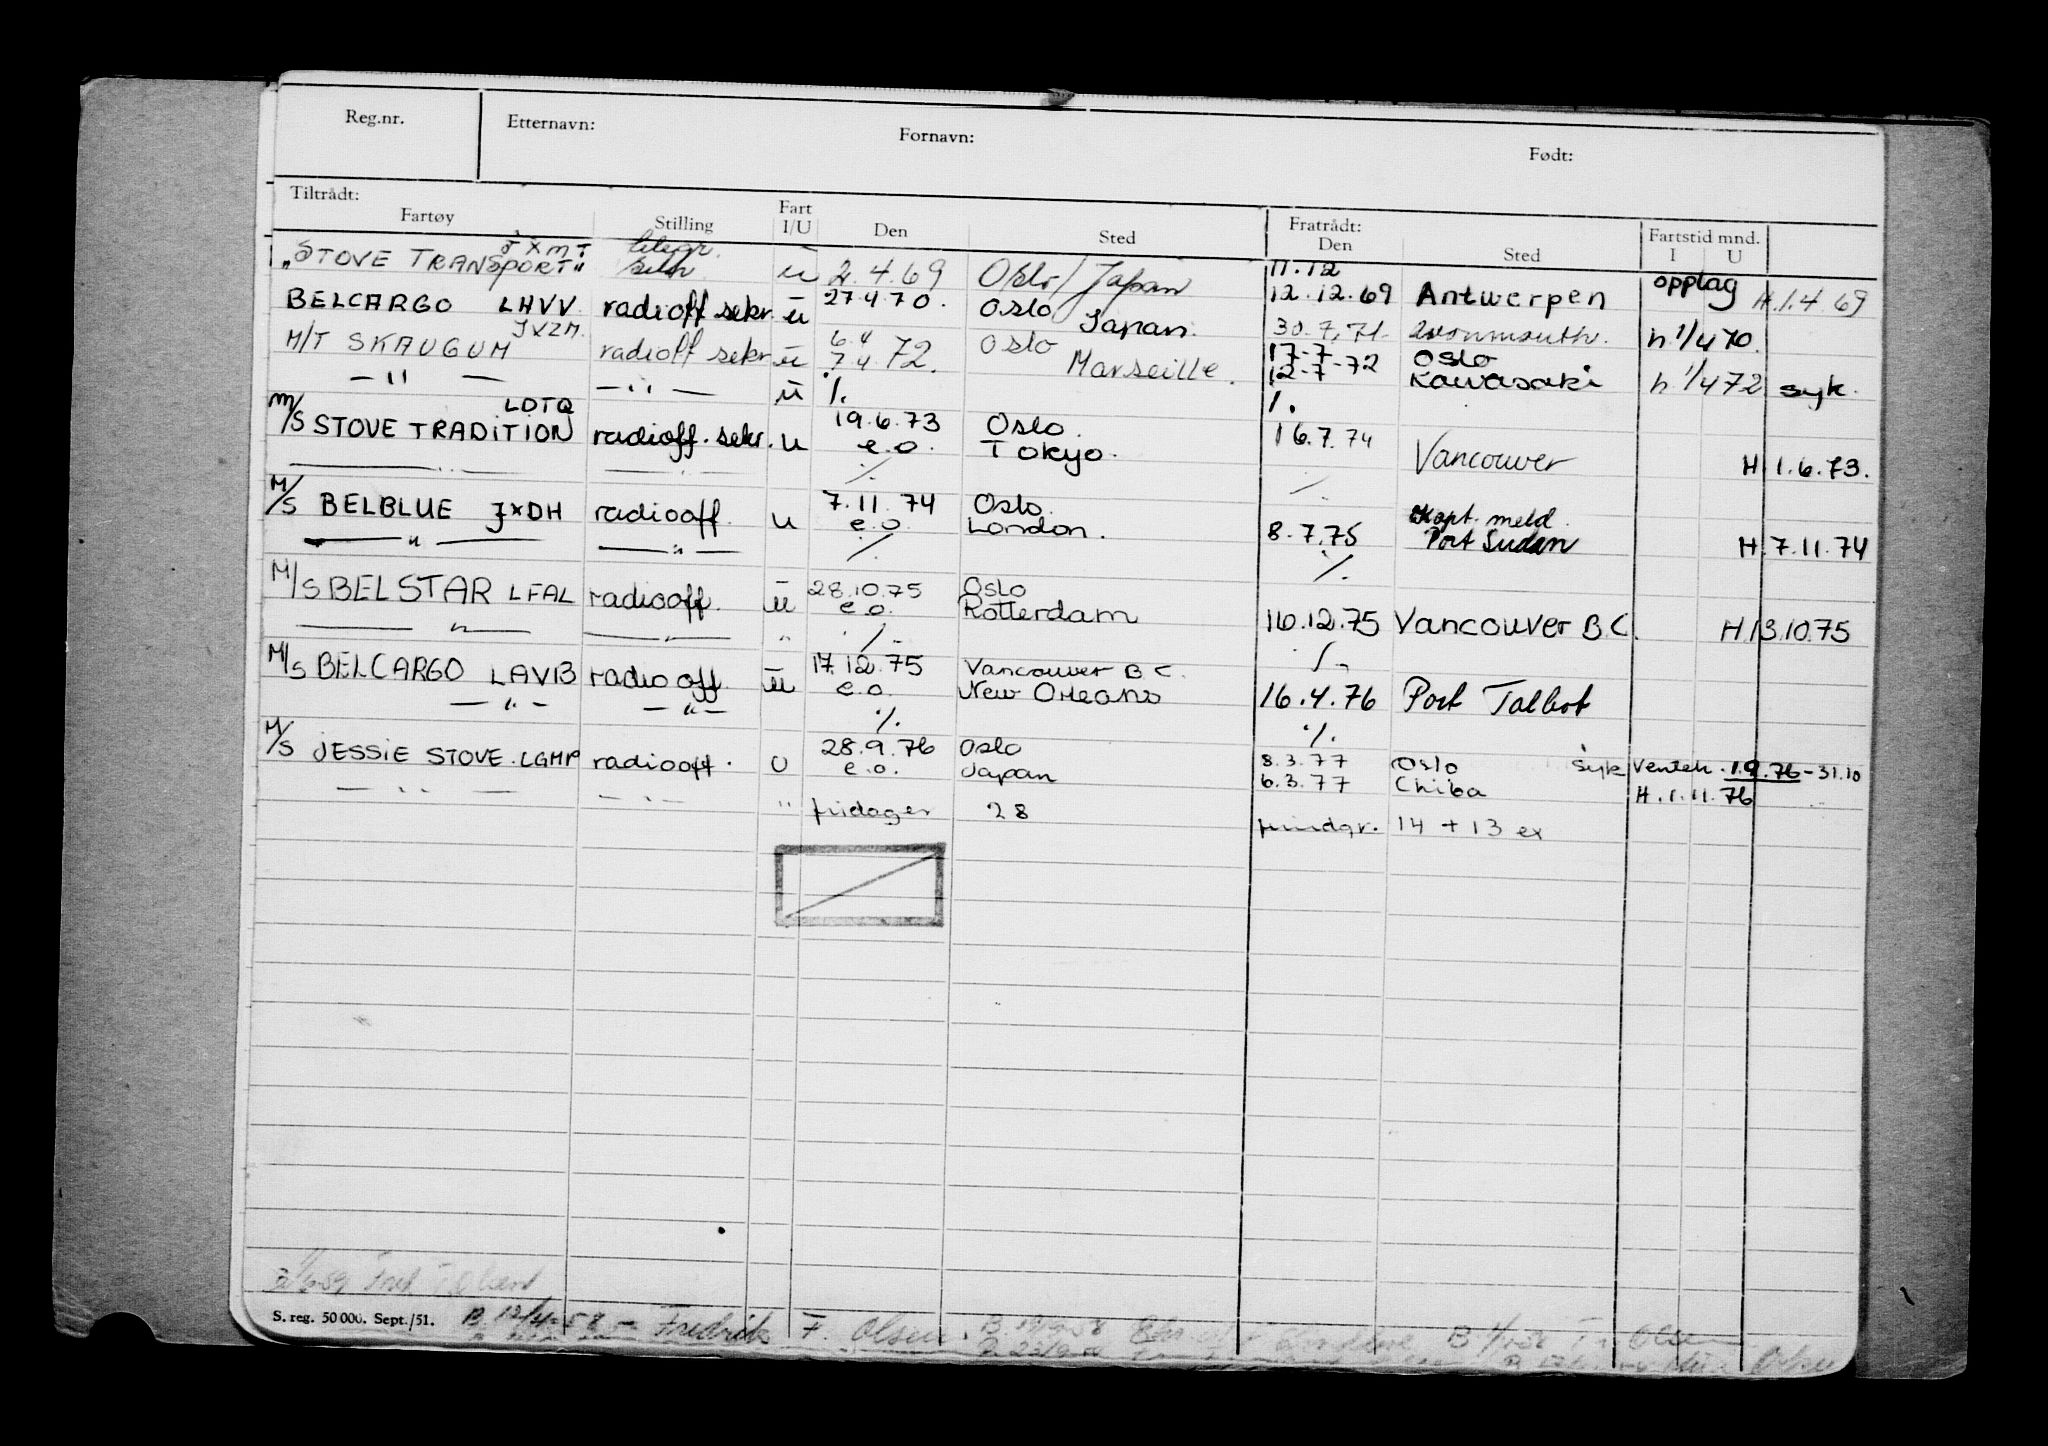 Reg.nr. Etternavn: Fornavn: Født:
Tiltrådt: Fratrådt:
Fartøy Stilling Fart I/U Den Sted Den Sted Fartstid mnd. I U
JXMT telegr. 11.12
"STOVE TRANSPORT" sekr. u 2.4.69 Oslo/Japan 12.12.69 Antwerpen opplag H.1.4.69
BELCARGO LHVV radioff sekr. u 27.4.70. Oslo Japan. 30.7.71. Avonmouth. h 1/4 70.
JXZM. 6.4 17-7
M/T SKAUGUM radioff sekr u 7.4.72. Oslo Marseille. 12-7-72 Oslo Kawasaki h 1/4 72 syk.
— " — — " — u ·/. ·/.
LDTQ 19.6.73 Oslo.
M/S STOVE TRADITION radioff. sekr. u e.o. Tokyo. 16.7.74 Vancouver H 1.6.73.
— " — — " — ·/. ·/.
7.11.74 Oslo. Kapt. meld.
M/S BELBLUE JXDH radiooff. u e.o. London. 8.7.75 Port Sudan H 7.11.74
— " — — " — ·/. ·/.
28.10.75 Oslo
M/S BELSTAR LFAL radiooff. u e.o. Rotterdam 16.12.75 Vancouver B.C. H 13.10.75
— " — — " — " ·/. ·/.
17.12.75 Vancouver B C.
M/S BELCARGO LAVB radio off. u e.o. New Orleans 16.4.76 Port Talbot
— " — — " — ·/. ·/.
28.9.76 Oslo 8.3.77 Oslo syk Venteh. 1.9.76-31.10
M/S JESSIE STOVE. LGMP radiooff. u e.o. Japan 6.3.77 Chiba H.1.11.76
— " — — " — " fridager 28 fridgr. 14 + 13 ex
S. reg. 50 000. Sept./51. B 12/4-58 Fredrik F. Olsen.